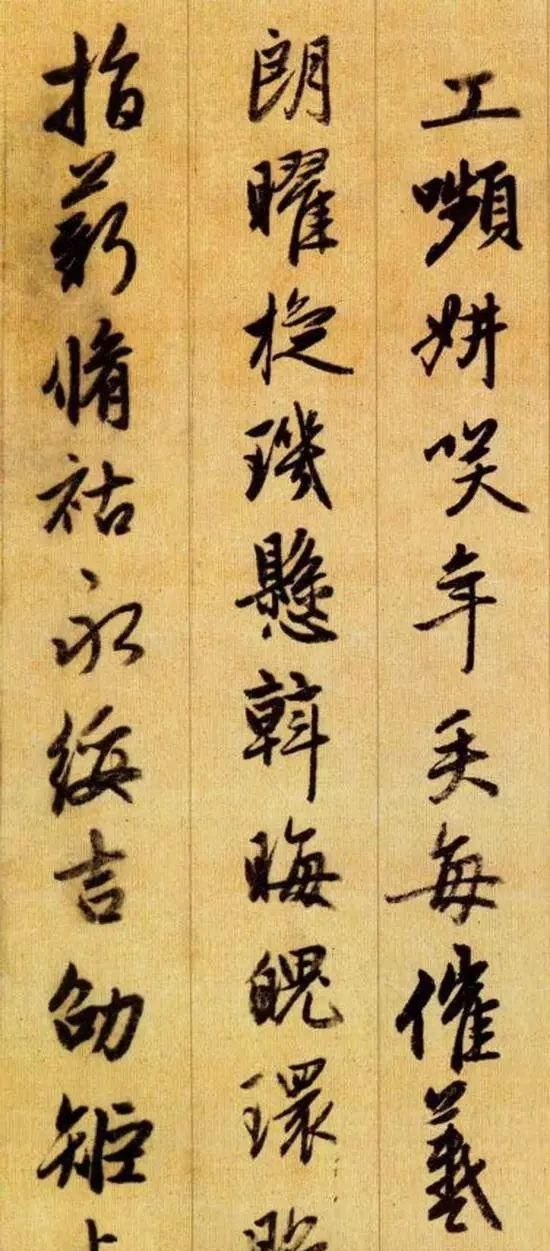 工嚬妍咲年矢每催羲
朗曜旋璣懸斡晦魄環
指薪脩祜永綏吉劭矩